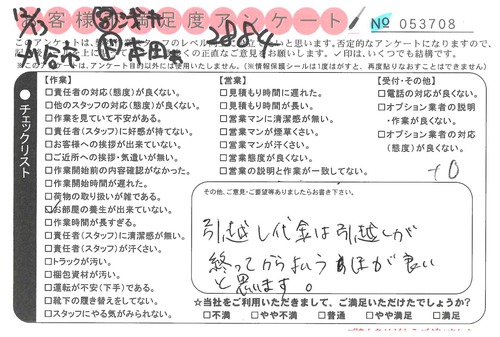 お客様満足度アンケート
№ 053708
2884
このアンケートは、
※このアンケートは、アンケート目的以外には使用いたしません。(情報保護シールは1度はがすと、再度貼りなおすことはできません)
チェックリスト
【作業】
□責任者の対応(態度)が良くない。
□他のスタッフの対応(態度)が良くない。
□作業を見ていて不安がある。
□責任者(スタッフ)に好感が持てない。
□お客様への挨拶が出来ていない。
□ご近所への挨拶・気遣いが無い。
□作業開始前の内容確認がなかった。
□作業開始時間が遅れた。
□荷物の取り扱いが雑である。
□お部屋の養生が出来ていない。
□作業時間が長すぎる。
□責任者(スタッフ)に清潔感が無い。
□責任者(スタッフ)が汗くさい。
□トラックが汚い。
□梱包資材が汚い。
□運転が不安(下手)である。
□靴下の履き替えをしてない。
□スタッフにやる気がみられない。
【営業】
□見積もり時間に遅れた。
□見積もり時間が長い。
□営業マンに清潔感が無い。
□営業マンが煙草くさい。
□営業マンが汗くさい。
□営業態度が良くない。
□営業の説明と作業が一致してない。
【受付・その他】
□電話の対応が良くない。
□オプション業者の説明
・作業が良くない。
□オプション業者の対応
(態度)が良くない。
+0
その他、ご意見・ご要望等ありましたらお書き下さい。
引越し代金は引越しが
終ってから払うほうが良い
と思います。
☆当社をご利用いただきまして、ご満足いただけたでしょうか?
□不満 □やや不満 □普通 □やや満足 □満足